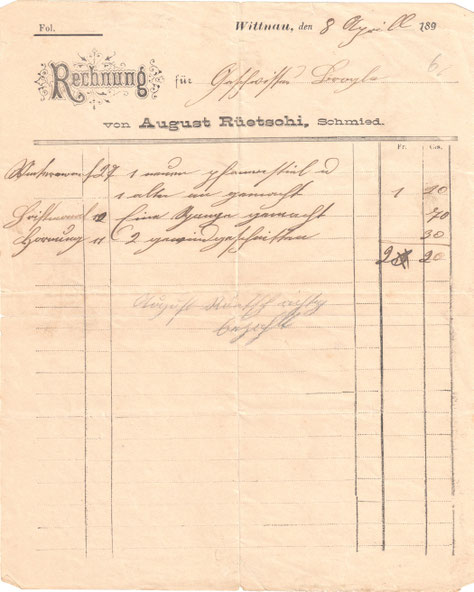 Fol.
Wittnau, den 8 Aprill 189
6
Rechnung für Geschwister Brogle
von August Rüetschi, Schmied.
Fr. Cts.
Wintermonat 27 1 neuen pfannenstiel u
1 alten an gemacht 1 20
Christmonat 12 Eine Zange gemacht 70
Hornung 11 2 gewindgeschnitten 30
2 20
August Ruetschi
bezahlt